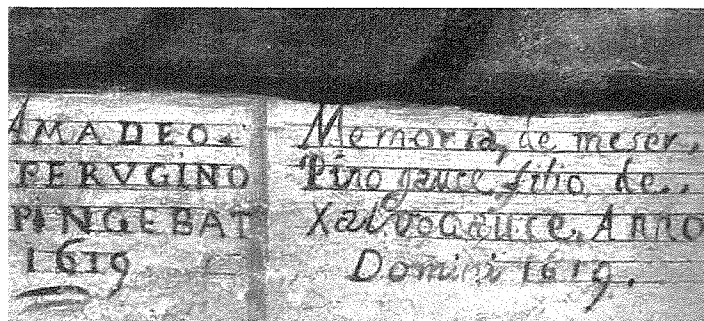 AMADEO.
PERVGINO
PINGEBAT
1619
Memoria, de meser,
Piro gauce, filio de..
Xalvogauce, Anno
Domini 1619.